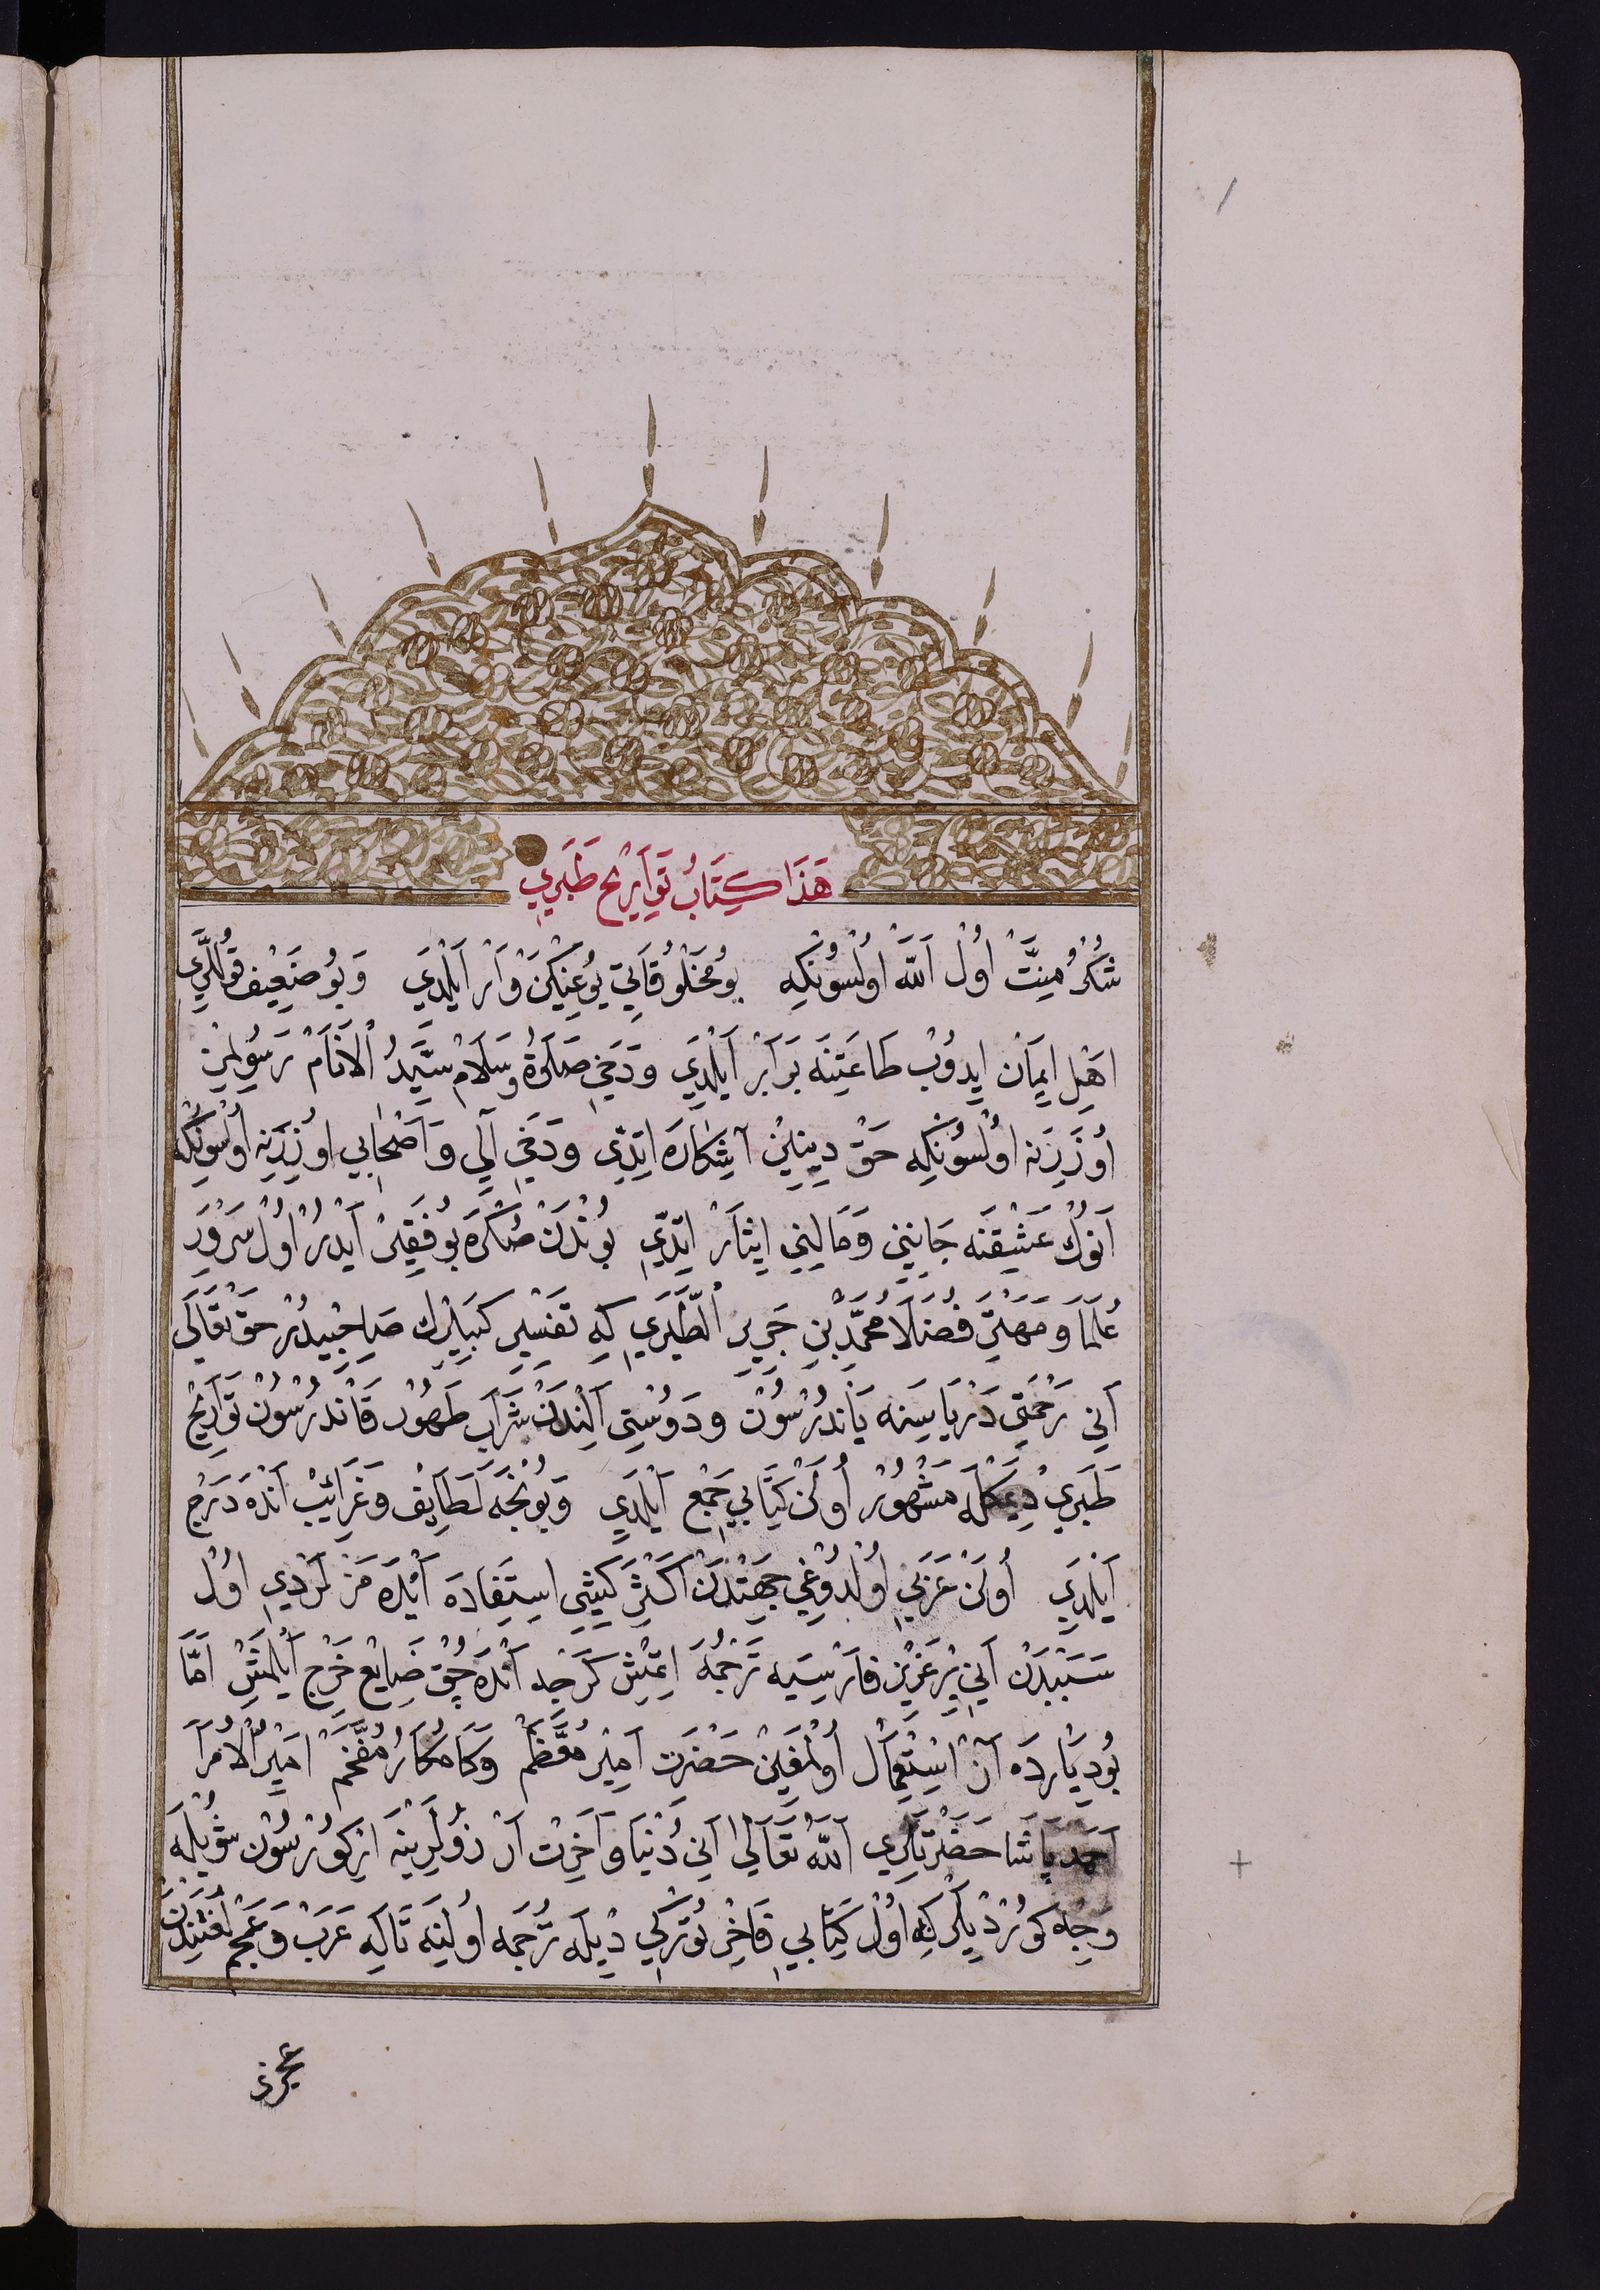 هَذَا كِتَابُ تَوَارِيْخ طَبَرِي
شُكْرُ مِنَّتْ اُوْل اَللّٰه اُولْسُونْكِه بُو مَخْلُوقَاتِي يُوغِيكَنْ وَارْ اَيْلَدِي وَبُو ضَعِيف قُولَّرِي
اَهْلِ اِيمَانْ اِيدُوْبْ طَاعَتِنَه بَرَابَرْ اَيْلَدِي وَدَخِي صَلَوةُ وسَلَامْ سَيِّدُ الْاَنَامْ رَسُولِينْ
اُوزَرِنَه اُولْسُونْكِه حَقْ دِينِينْ آشِكَارَه اِتدِّي وَدَخِي آلِي وَاَصْحَابِي اوُزَرِنِه اُولْسُونْكِه
اَنوُكْ عَشِقِنَه جَانِينِي وَمَالِينِي اِيثَارْ اِتدِّي بُونْدَنْ صُكْرَه بُو فَقِيرْ اَيْدُرْ اُولْ سَرْوَرِ
عُلَمَا وَمِهْتَرِ فُضَلَا مُحَمَّدْ بْنِ جَرِيرِ الطَّبَرِي كِه تَفْسِيرِ كَبِيرُكْ صَاحِبِيدُرْ حَقْ تَعَالَى
اَنِي رَحْمَتِي دَرْيَاسِينَه يَانْدُرْسُونْ وَدَوُسْتِي اَلِنْدَنْ شَرَابِ طَهُورْ قَانْدُرْسُونْ تَوَارِيْخِ
طَبَرِي دِيمَكْلَه مَشْهُورْ اُولَنْ كِتَابِي جَمْع اَيْلَدِي وَبُونْجَه لَطَايِفْ وَغَرَائِبْ اَنْدَه دَرْج
اَيْلَدِي اُولَنْ عَرَبِي اُولْدُوغِي جِهَتْدَنْ اَكْثَرْ كِيشِي اِسْتِفَادَه اَيْدَه مَزْلَرْدِي اوُل
سَبَبْدَنْ اَنِي بِرْ عَزِيزْ فَارْسِيَه تَرْجُمَه اِتْمِشْ كَرْچِه اَنْدَه چُقْ ضَايِع خَرْج اَيْلَمِشْ اَمَّا
بُودِيَارْدَه آنْ اِسْتِعْمَال اُولْمَغِينْ حَضْرَتِ اَمِيرْ مُعَظَّمْ وَكَامْكَارُ مُفَخَّمْ اَمِيرُ الْاُمَرَا
اَحْمَدْ پَاشَا حَضْرَتْلَرِي اَللّٰهُ تَعَالَى اَنِي دُنْيَا وَآخِرَتْ اَرْزُولَرِينَه اِرْكوُرْسُون شُويْلَه
وَجْه كُورْدِيلَرْكِه اوُل كِتَابِي فَاخِرْ تُورْكِي دِيلَه تَرْجُمَه اُولِنَه تَاكِه عَرَبْ وَعَجَمْ لُغَتِنْدَنْ